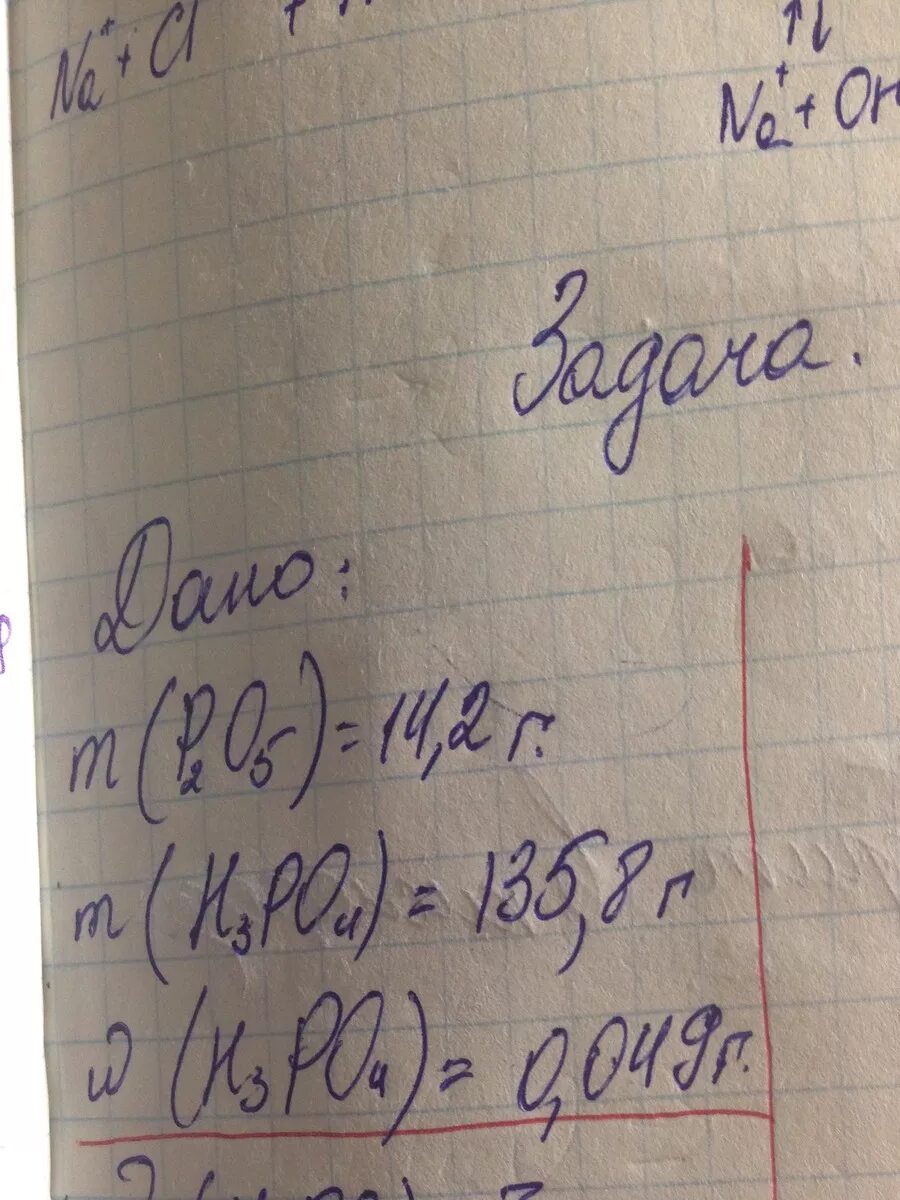 Na⁺ + Cl
Na⁺ + OH
Задача.
Дано:
m (P₂O₅) = 14,2 г.
m (H₃PO₄) = 135,8 г
ω (H₃PO₄) = 0,049 г.